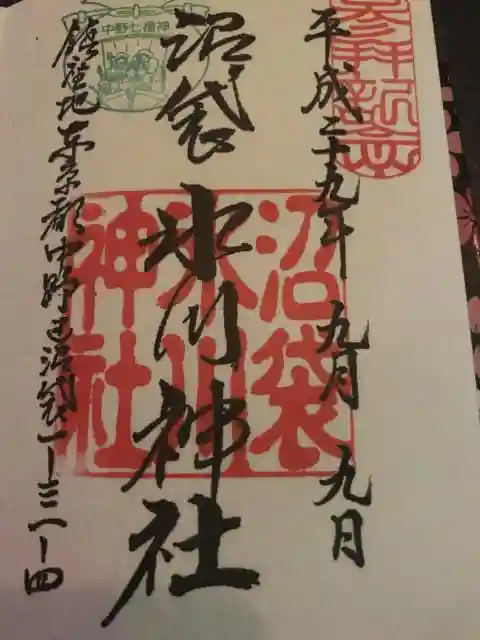 参拝記念
平成二十九年 九月 九日
沼袋 氷川神社
沼袋
氷川
神社
中野七福神
鎮座地東京都中野区沼袋一ー三一ー四